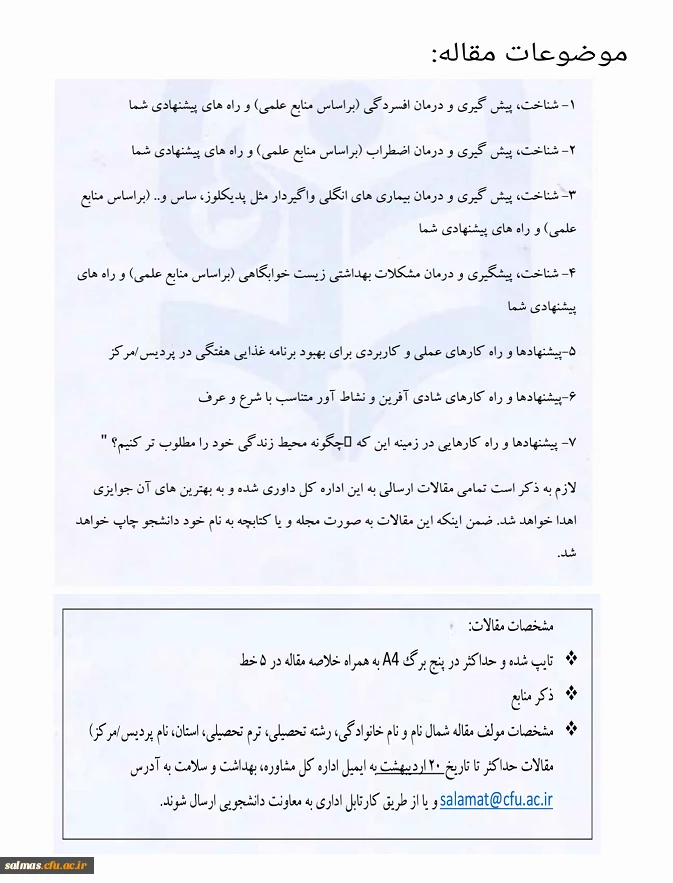 موضوعات مقاله:
۱- شناخت، پیش گیری و درمان افسردگی (براساس منابع علمی) و راه های پیشنهادی شما
۲- شناخت، پیش گیری و درمان اضطراب (براساس منابع علمی) و راه های پیشنهادی شما
۳- شناخت، پیش گیری و درمان بیماری های انگلی واگیردار مثل پدیکلوز، ساس و.. (براساس منابع
علمی) و راه های پیشنهادی شما
۴- شناخت، پیشگیری و درمان مشکلات بهداشتی زیست خوابگاهی (براساس منابع علمی) و راه های
پیشنهادی شما
۵-پیشنهادها و راه کارهای عملی و کاربردی برای بهبود برنامه غذایی هفتگی در پردیس/مرکز
۶-پیشنهادها و راه کارهای شادی آفرین و نشاط آور متناسب با شرع و عرف
۷- پیشنهادها و راه کارهایی در زمینه این که چگونه محیط زندگی خود را مطلوب تر کنیم؟ "
لازم به ذکر است تمامی مقالات ارسالی به این اداره کل داوری شده و به بهترین های آن جوایزی
اهدا خواهد شد. ضمن اینکه این مقالات به صورت مجله و یا کتابچه به نام خود دانشجو چاپ خواهد
شد.
مشخصات مقالات:
❖ تایپ شده و حداکثر در پنج برگ A4 به همراه خلاصه مقاله در ۵ خط
❖ ذکر منابع
❖ مشخصات مولف مقاله شمال نام و نام خانوادگی، رشته تحصیلی، ترم تحصیلی، استان، نام پردیس/مرکز)
مقالات حداکثر تا تاریخ ۲۰ اردیبهشت به ایمیل اداره کل مشاوره، بهداشت و سلامت به آدرس
salamat@cfu.ac.ir و یا از طریق کارتابل اداری به معاونت دانشجویی ارسال شوند.
salmas.cfu.ac.ir